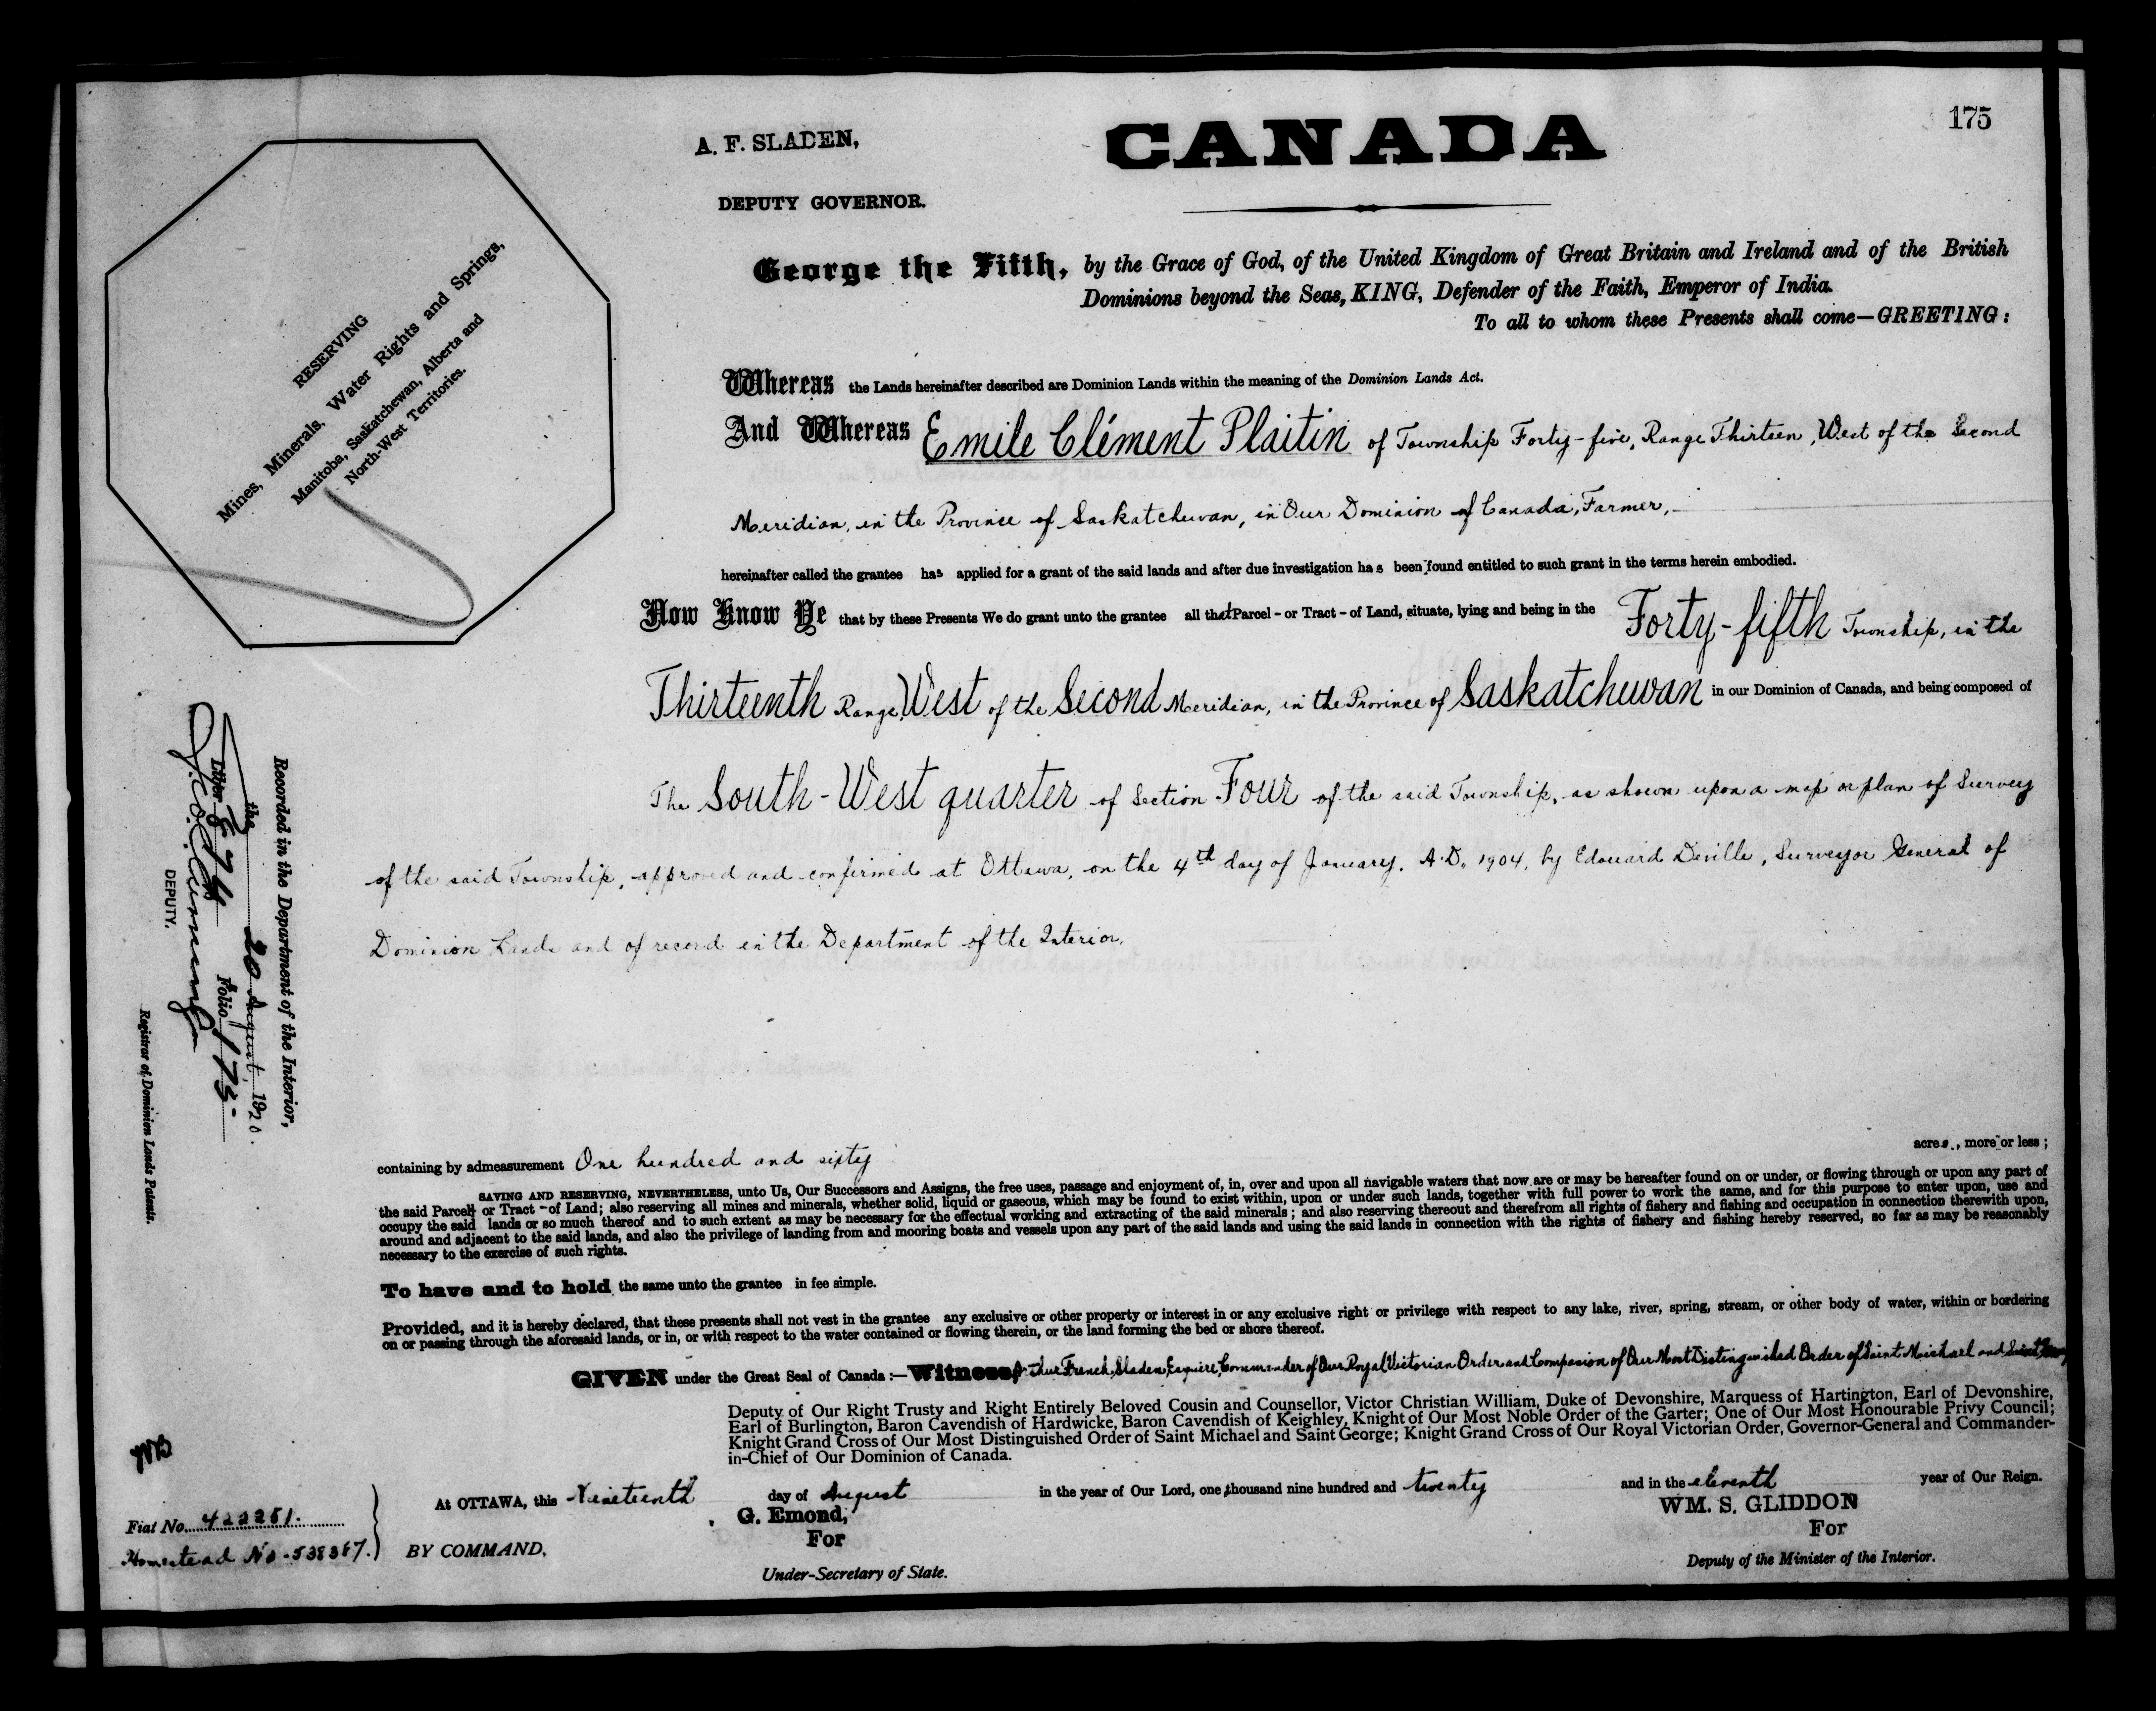 175
A. F. SLADEN,
CANADA
DEPUTY GOVERNOR.
George the Fifth, by the Grace of God, of the United Kingdom of Great Britain and Ireland and of the British
Dominions beyond the Seas, KING, Defender of the Faith, Emperor of India.
To all to whom these Presents shall come—GREETING:
RESERVING
Mines, Minerals, Water Rights and Springs,
Manitoba, Saskatchewan, Alberta and
North-West Territories.
Whereas the Lands hereinafter described are Dominion Lands within the meaning of the Dominion Lands Act.
And Whereas Emile Clément Plaitin of Township Forty-five, Range Thirteen, West of the Second
Meridian, in the Province of Saskatchewan, in Our Dominion of Canada, Farmer,
hereinafter called the grantee has applied for a grant of the said lands and after due investigation has been found entitled to such grant in the terms herein embodied.
Now Know Ye that by these Presents We do grant unto the grantee all that Parcel - or Tract - of Land, situate, lying and being in the Forty-fifth Township, in the
Thirteenth Range, West of the Second Meridian, in the Province of Saskatchewan in our Dominion of Canada, and being composed of
The South-West quarter of Section Four of the said Township, as shown upon a map or plan of Survey
of the said Township, approved and confirmed at Ottawa, on the 4th day of January, A.D. 1904, by Edouard Deville, Surveyor General of
Dominion Lands and of record in the Department of the Interior.
Recorded in the Department of the Interior,
the 20 August, 1920.
Liber 874 Folio 175-
DEPUTY.
Registrar of Dominion Lands Patents.
containing by admeasurement One hundred and sixty acres, more or less;
SAVING AND RESERVING, NEVERTHELESS, unto Us, Our Successors and Assigns, the free uses, passage and enjoyment of, in, over and upon all navigable waters that now are or may be hereafter found on or under, or flowing through or upon any part of
the said Parcel- or Tract - of Land; also reserving all mines and minerals, whether solid, liquid or gaseous, which may be found to exist within, upon or under such lands, together with full power to work the same, and for this purpose to enter upon, use and
occupy the said lands or so much thereof and to such extent as may be necessary for the effectual working and extracting of the said minerals; and also reserving thereout and therefrom all rights of fishery and fishing and occupation in connection therewith upon,
around and adjacent to the said lands, and also the privilege of landing from and mooring boats and vessels upon any part of the said lands and using the said lands in connection with the rights of fishery and fishing hereby reserved, so far as may be reasonably
necessary to the exercise of such rights.
To have and to hold the same unto the grantee in fee simple.
Provided, and it is hereby declared, that these presents shall not vest in the grantee any exclusive or other property or interest in or any exclusive right or privilege with respect to any lake, river, spring, stream, or other body of water, within or bordering
on or passing through the aforesaid lands, or in, or with respect to the water contained or flowing therein, or the land forming the bed or shore thereof.
GIVEN under the Great Seal of Canada:—Witness, Arthur French Sladen, Esquire, Commander of Our Royal Victorian Order and Companion of Our Most Distinguished Order of Saint Michael and Saint George
Deputy of Our Right Trusty and Right Entirely Beloved Cousin and Counsellor, Victor Christian William, Duke of Devonshire, Marquess of Hartington, Earl of Devonshire,
Earl of Burlington, Baron Cavendish of Hardwicke, Baron Cavendish of Keighley, Knight of Our Most Noble Order of the Garter; One of Our Most Honourable Privy Council;
Knight Grand Cross of Our Most Distinguished Order of Saint Michael and Saint George; Knight Grand Cross of Our Royal Victorian Order, Governor-General and Commander-
in-Chief of Our Dominion of Canada.
At OTTAWA, this Nineteenth day of August in the year of Our Lord, one thousand nine hundred and twenty and in the eleventh year of Our Reign.
G. Emond,
For
WM. S. GLIDDON
For
Fiat No. 422251.
Homestead No. 538367.
BY COMMAND,
Under-Secretary of State.
Deputy of the Minister of the Interior.